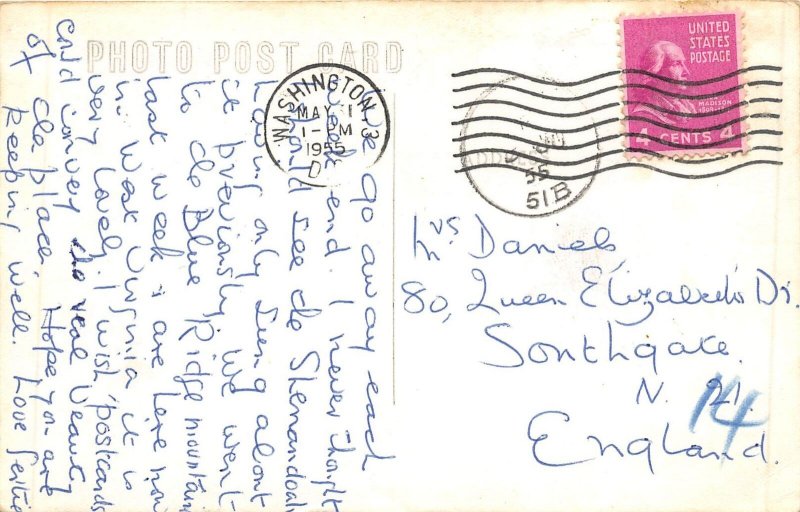 PHOTO POST CARD
We go away each
week end. I never thought
I would see the Shenandoah
having only sung about
it previously. We went
to the Blue Ridge mountains
last week & are here now
in West Virginia it is
very lovely. I wish postcards
could convey the real beauty
of the place. Hope you are
keeping well. Love
WASHINGTON, 3
MAY 1
1-PM
1955
D
55
51B
UNITED
STATES
POSTAGE
MADISON
4 CENTS 4
Mrs Daniels,
80, Queen Elizabeth's Dr.
Southgate.
N. 21.
14
England.